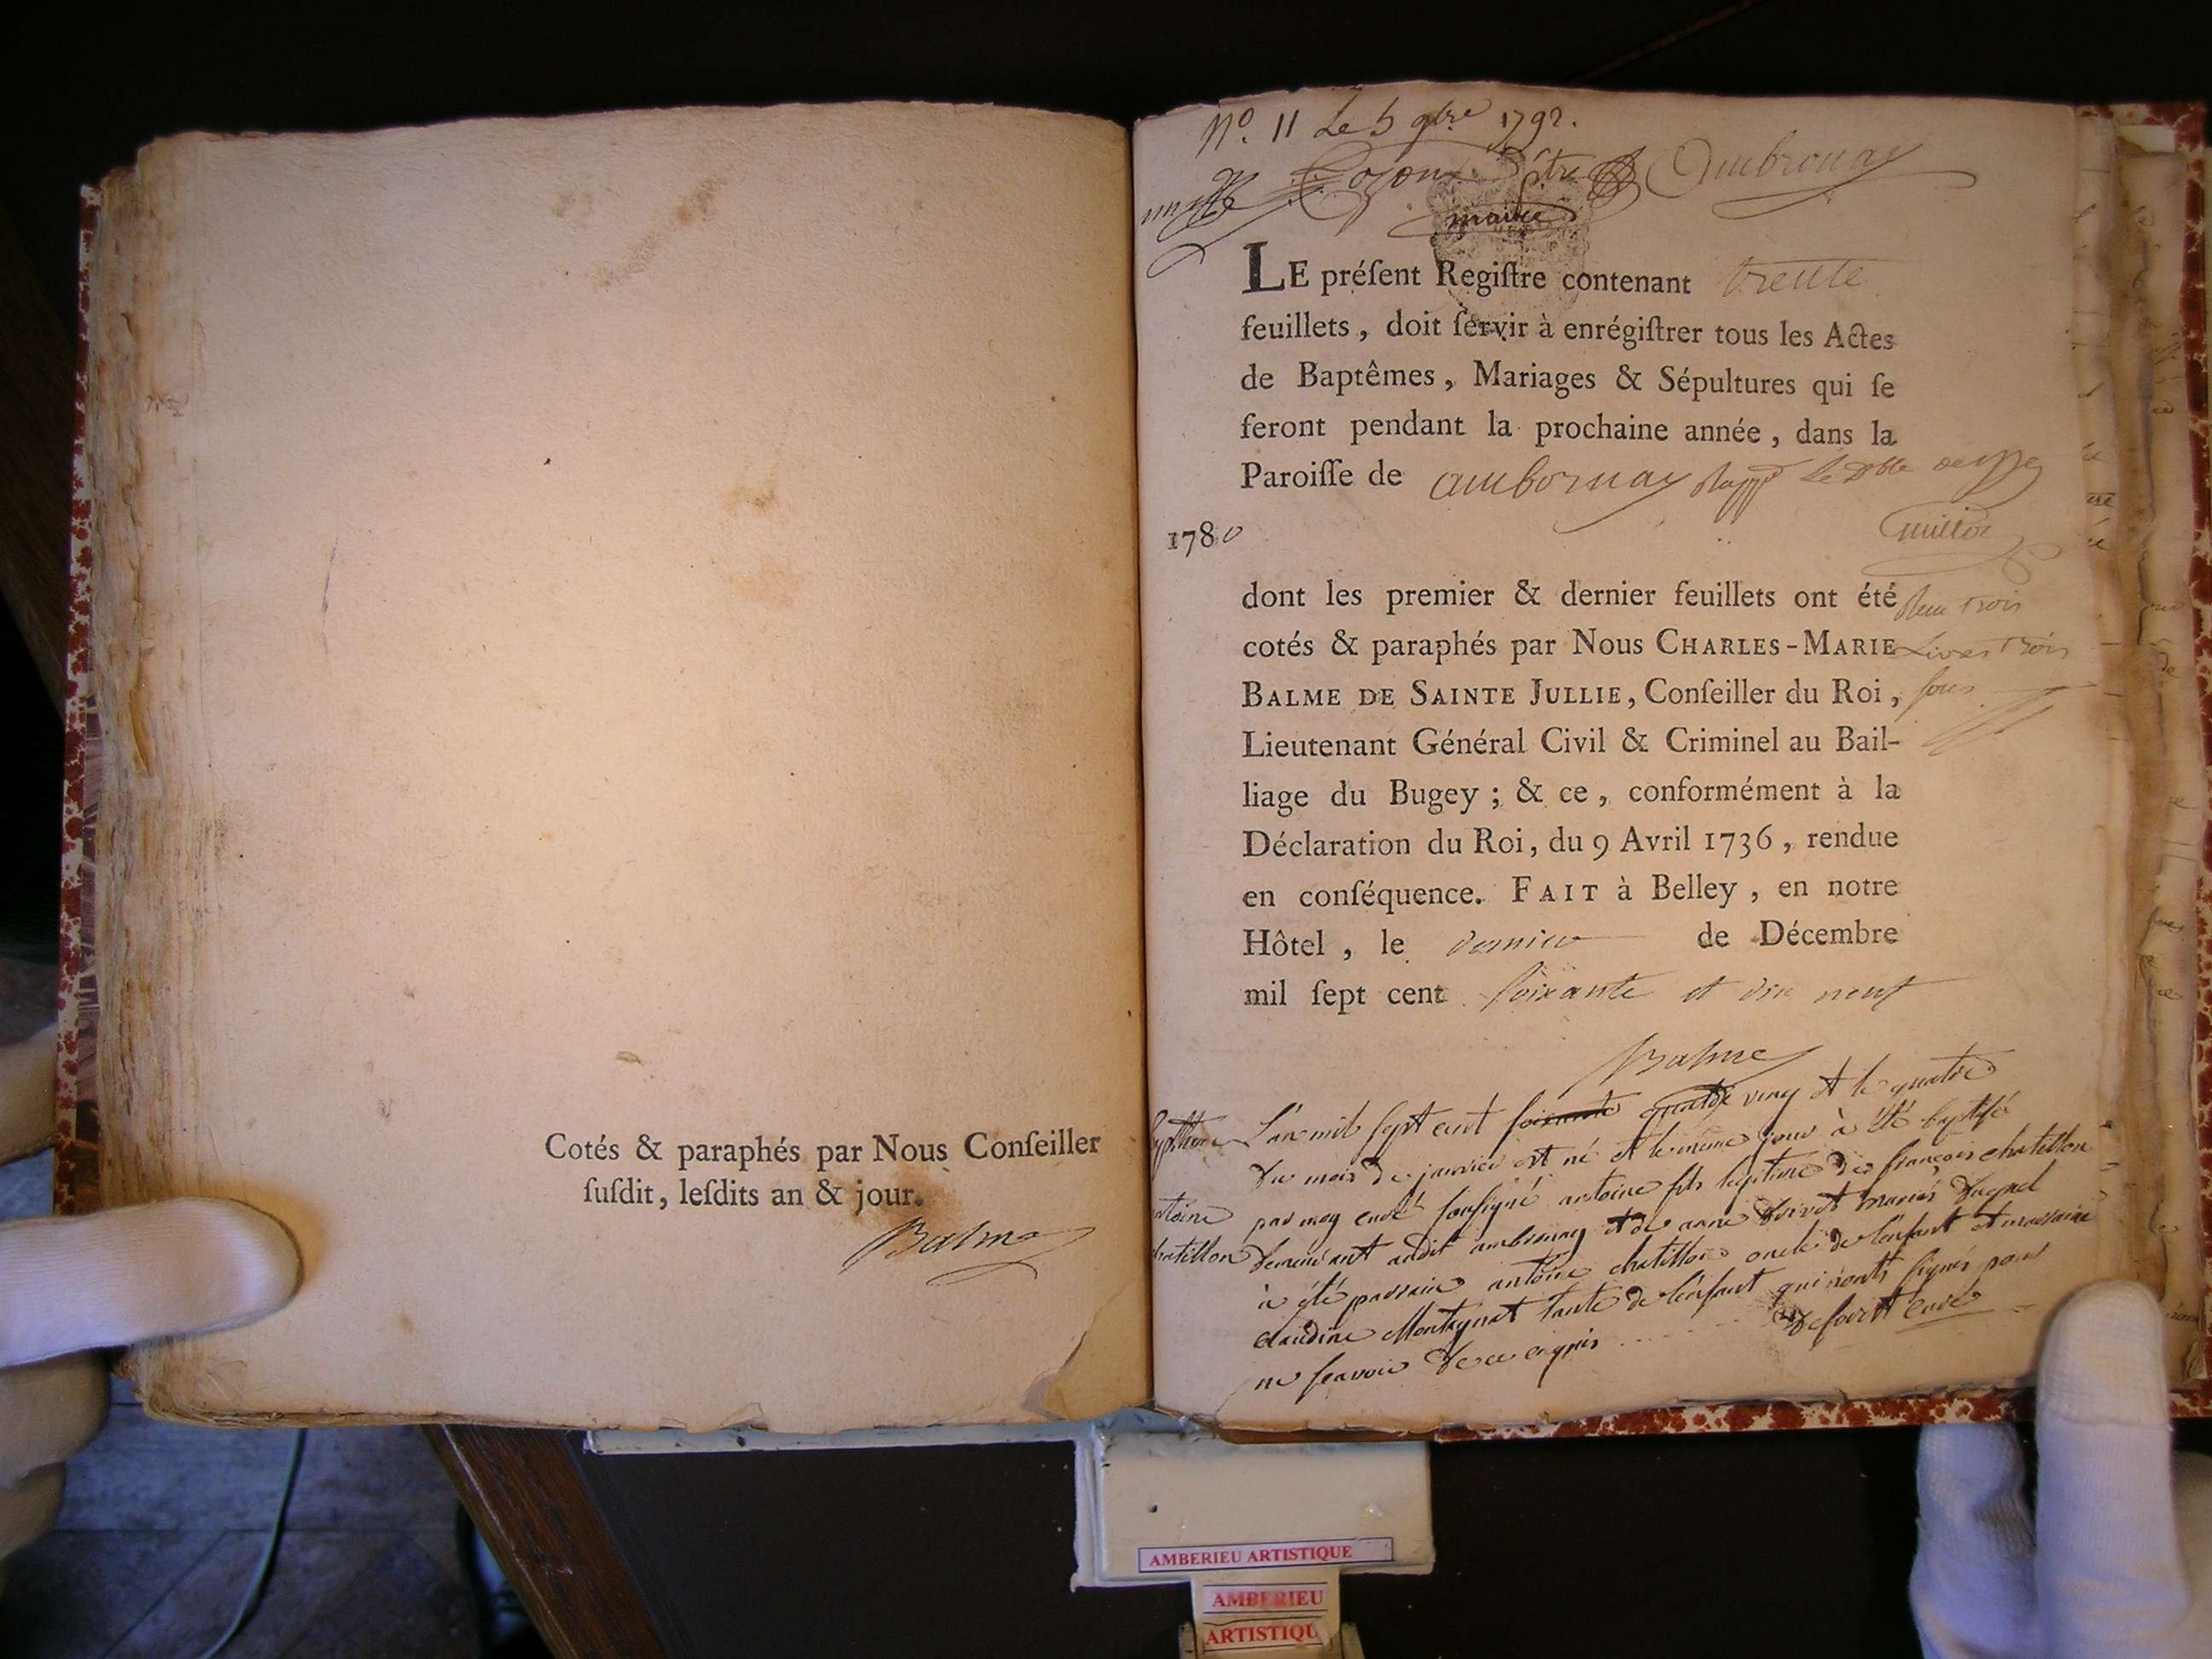 Cotés & paraphés par Nous Conſeiller
ſuſdit, leſdits an & jour.
Balme
No. 11 Le 5 9bre 1792.
Ambronay
maire
LE préſent Regiſtre contenant trente
feuillets, doit ſervir à enrégiſtrer tous les Actes
de Baptêmes, Mariages & Sépultures qui ſe
feront pendant la prochaine année, dans la
Paroiſſe de ambornay
1780
dont les premier & dernier feuillets ont été
cotés & paraphés par Nous CHARLES-MARIE
BALME DE SAINTE JULLIE, Conſeiller du Roi,
Lieutenant Général Civil & Criminel au Bail-
liage du Bugey ; & ce, conformément à la
Déclaration du Roi, du 9 Avril 1736, rendue
en conſéquence. FAIT à Belley, en notre
Hôtel, le dernier de Décembre
mil ſept cent soixante et dix neuf
Balme
trois
Livres trois
sous
L'an mil sept cent soixante quatre ving et le quatre
du mois de janvier est né et le meme jour à été baptisé
par moy curé soussigné antoine fils legitime de françois chatillon
demeurant audit ambronay et de anne mariés duquel
à été parrain antoine chatillon oncle de l'enfant et marraine
claudine Montagnat tante de l'enfant qui nonts signés pour
ne scavoir de ce enquis curé
antoine
chatillon
AMBERIEU ARTISTIQUE
AMBERIEU
ARTISTIQU